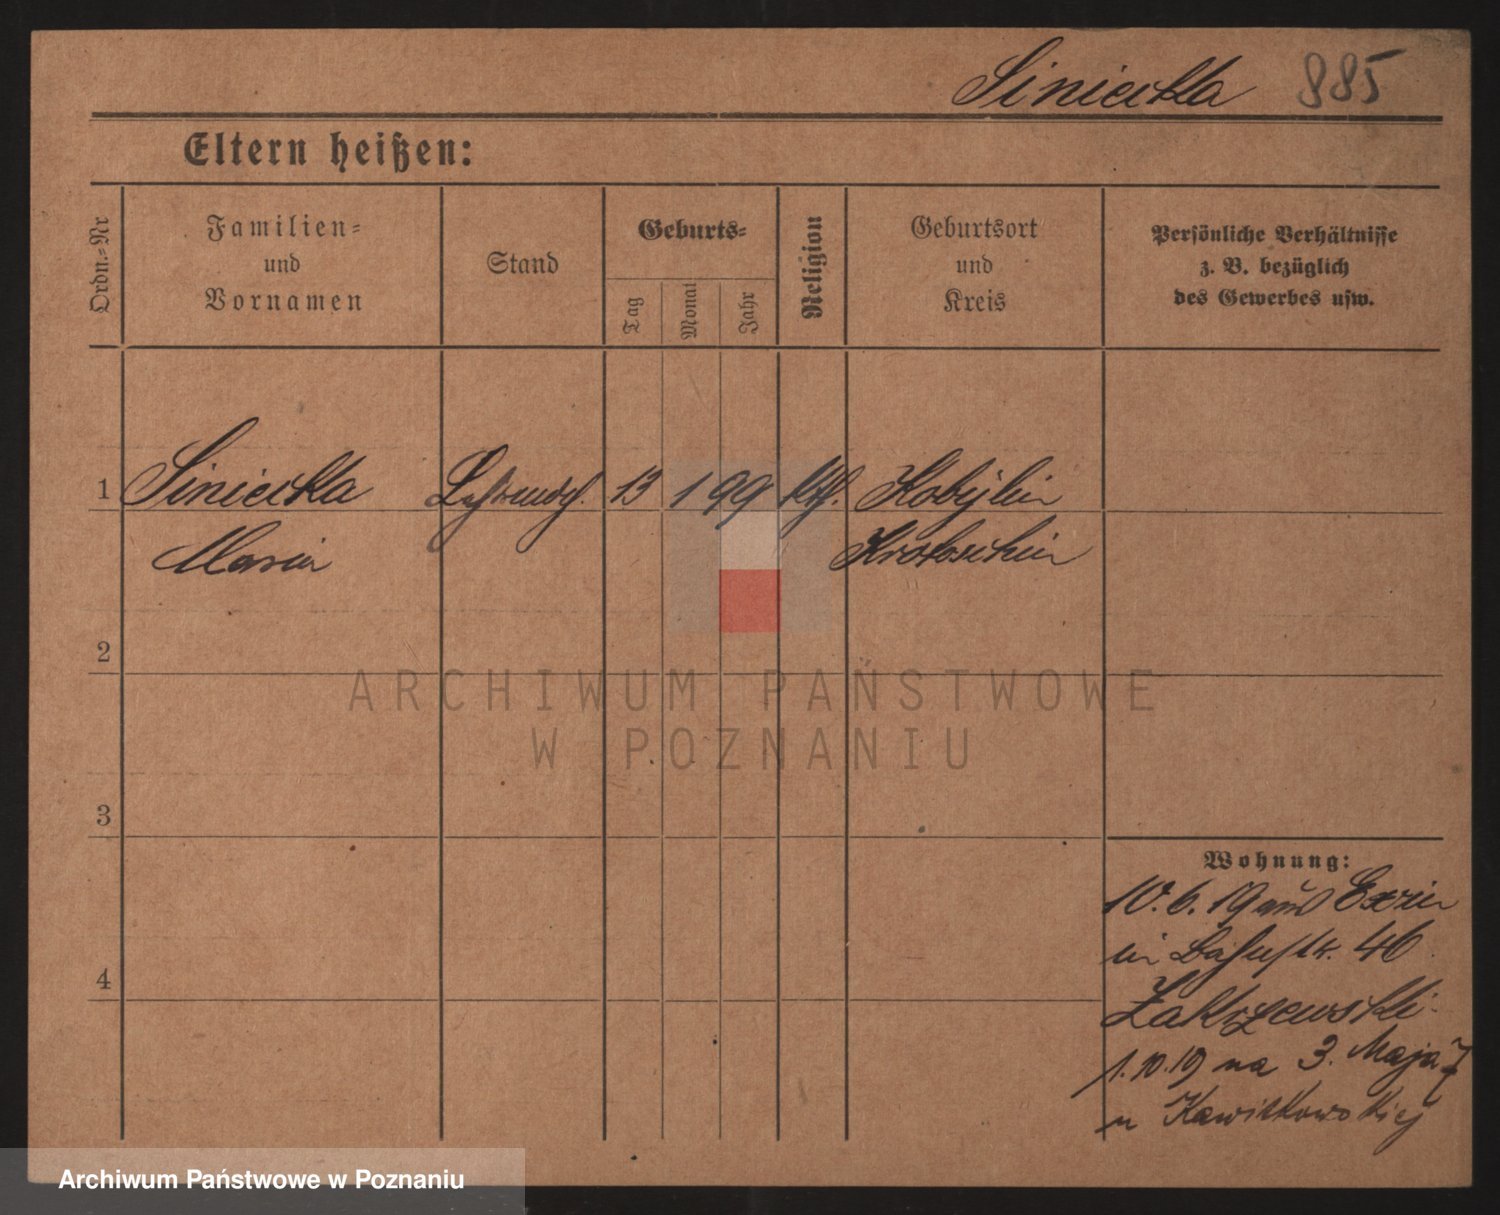 Siniecka 885
Eltern heißen:
Ordn.-Nr
Familien-
und
Vornamen
Stand
Geburts-
Tag
Monat
Jahr
Religion
Geburtsort
und
Kreis
Persönliche Verhältnisse
z. B. bezüglich
des Gewerbes usw.
1 Siniecka 13 1 99 kth. Kobylin
Maria Krotoschin
2
3
4
Wohnung:
10.6.19 aus Exin
in Bahnstr. 46
Zakrzewski.
1.10.19 na 3. Maja 7
u Kawitkowskiej
ARCHIWUM PAŃSTWOWE
W POZNANIU
Archiwum Państwowe w Poznaniu